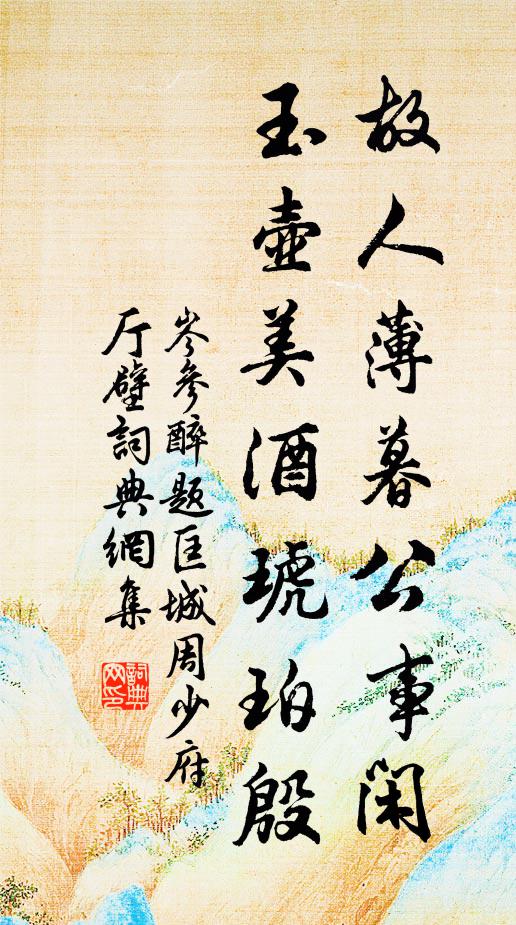 故人薄暮公事闲
玉壶美酒琥珀殷
岑参醉题匡城周少府
厅壁詞典網集
詞典網印